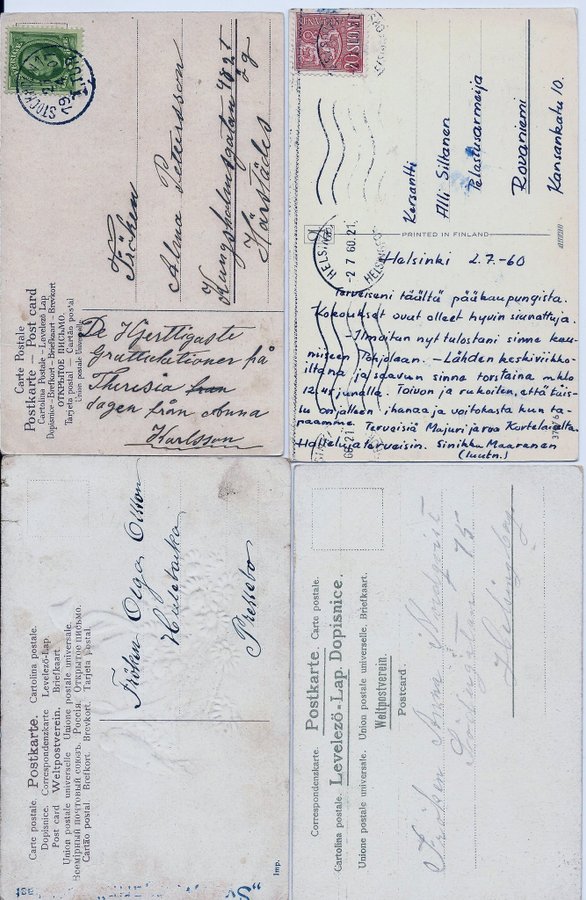 STOCKHOLM
Fröken
Alma Pettersson
Kungsholmsgatan
Härstädes
Carte Postale
Postkarte – Post card
Cartolina Postale – Levelező Lap
Dopisnice – Brefkort – Briefkaart – Brevkort
ОТКРЫТОЕ ПИСЬМО.
Tarjeta postal – Cartão postal
Union postale universelle.
De Hjerttligaste
Gratulationer på
Theresia
dagen från Anna
Karlsson
Kersantti
Alli Siltanen
Pelastusarmeija
Rovaniemi
Kansankatu 10.
PRINTED IN FINLAND
HELSINKI
-2 7 60.21
HELSINGFORS
Helsinki 2.7.-60
Terveiseni täältä pääkaupungista.
Kokoukset ovat olleet hyvin siunattuja.
- Ilmoitan nyt tulostani sinne kau-
niiseen Pohjolaan. - Lähden keskiviikko-
iltana ja saavun sinne torstaina n. klo
12,45 junalla. Toivon ja rukoilen, että tais-
telu on jälleen ihanaa ja voitokasta kun ta-
paamme. Terveisiä Majuri ja roa Kortelaiselta.
Halleluja terveisin. Sinikka Maaranen
(luutn.)
Fröken Olga Olsson
Hulebacka
Pressebo
Carte postale. Postkarte. Cartolina postale.
Dopisnice. Correspondenzkarte Levelező-Lap.
Post card Weltpostverein. Briefkaart.
Union postale universelle Unione postale universale.
Всемірный почтовый союзъ. Россія. Открытое письмо.
Cartão postal. Brefkort. Brevkort. Tarjeta postal.
Imp.
Correspondenzkarte. Postkarte. Carte postale.
Cartolina postale. Levelező-Lap. Dopisnice.
Unione postale universale. Union postale universelle. Briefkaart.
Weltpostverein.
Postcard.
Fröken